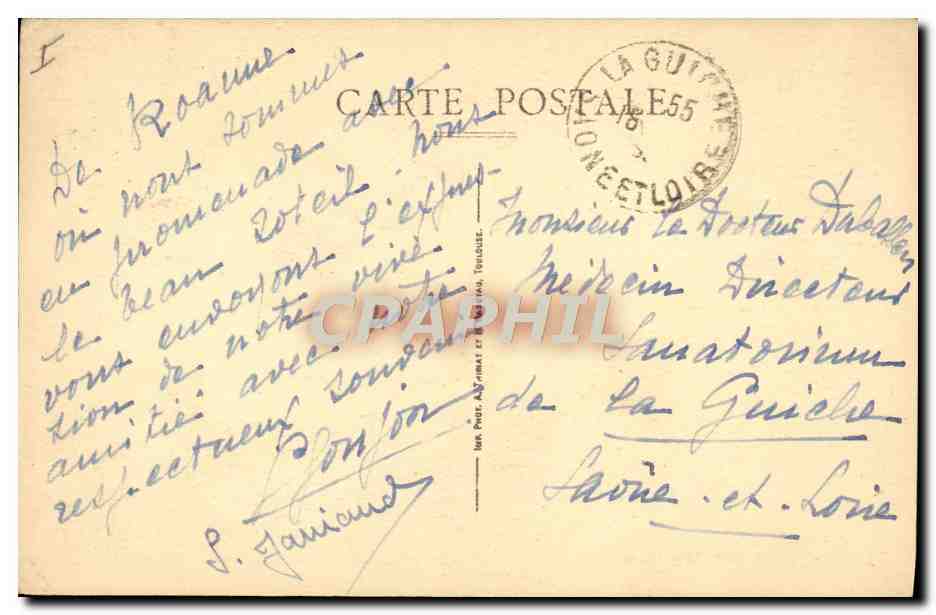 I
CARTE POSTALE
LA GUICHE
55
SAONE ET LOIRE
De Roanne
où nous sommes
en promenade avec
le beau soleil, nous
vous envoyons l'expres-
sion de notre vive
amitié avec notre
respectueux souvenir
S. Janiaud
IMP. PHOT. A. THIRIAT ET
TOULOUSE.
Monsieur le Docteur
Médecin Directeur
Sanatorium
de La Guiche
Saône-et-Loire
CPAPHIL